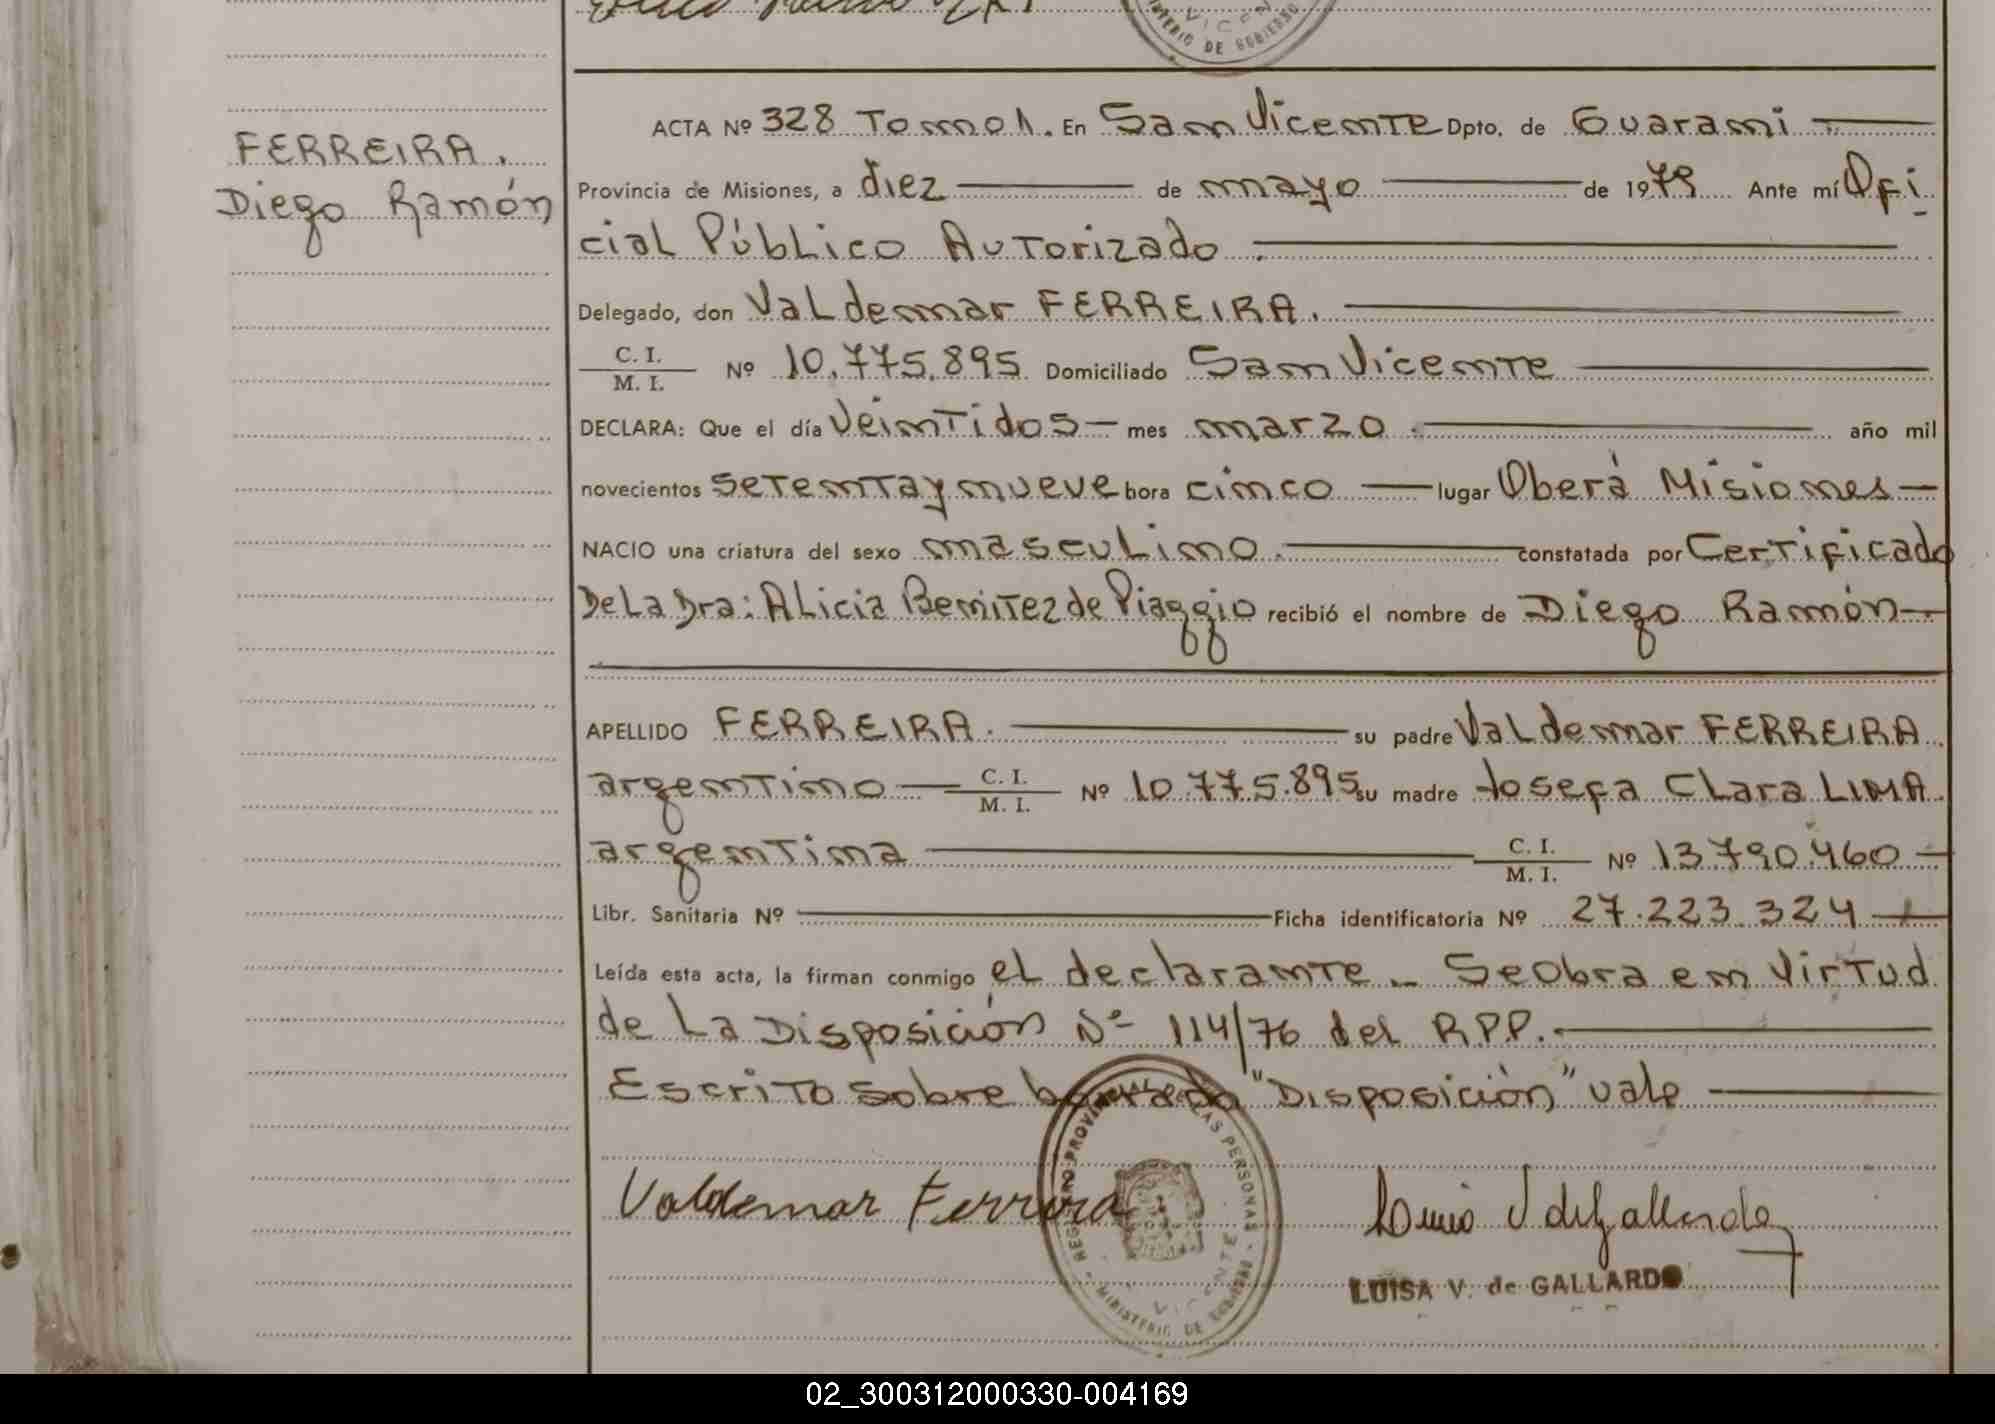 MINISTERIO DE GOBIERNO
VICEN
FERREIRA.
Diego Ramón
ACTA Nº 328 Tomo 1. En San Vicente Dpto. de Guarani
Provincia de Misiones, a diez de mayo de 1979 Ante mí Ofi
cial Público Autorizado.
Delegado, don Valdemar FERREIRA.
C. I.
M. I. Nº 10.775.895 Domiciliado San Vicente
DECLARA: Que el día Veintidos mes marzo. año mil
novecientos setenta y nueve hora cinco lugar Oberá Misiones
NACIO una criatura del sexo masculino. constatada por Certificado
De La Dra: Alicia Benitez de Piaggio recibió el nombre de Diego Ramón
APELLIDO FERREIRA. su padre Valdemar FERREIRA
argentino C. I.
M. I. Nº 10.775.895 su madre Josefa Clara LIMA.
argentina C. I.
M. I. Nº 13.790.460
Libr. Sanitaria Nº Ficha identificatoria Nº 27.223.324
Leída esta acta, la firman conmigo el declarante. Se Obra en Virtud
de La Disposición Nº 114/76 del R.P.P.
Escrito sobre borrado "Disposición" vale
Valdemar Ferreira
REGISTRO PROVINCIAL DE LAS PERSONAS - MINISTERIO DE GOBIERNO -
VICENTE
Luisa V de Gallardo
LUISA V. de GALLARDO
02_300312000330-004169